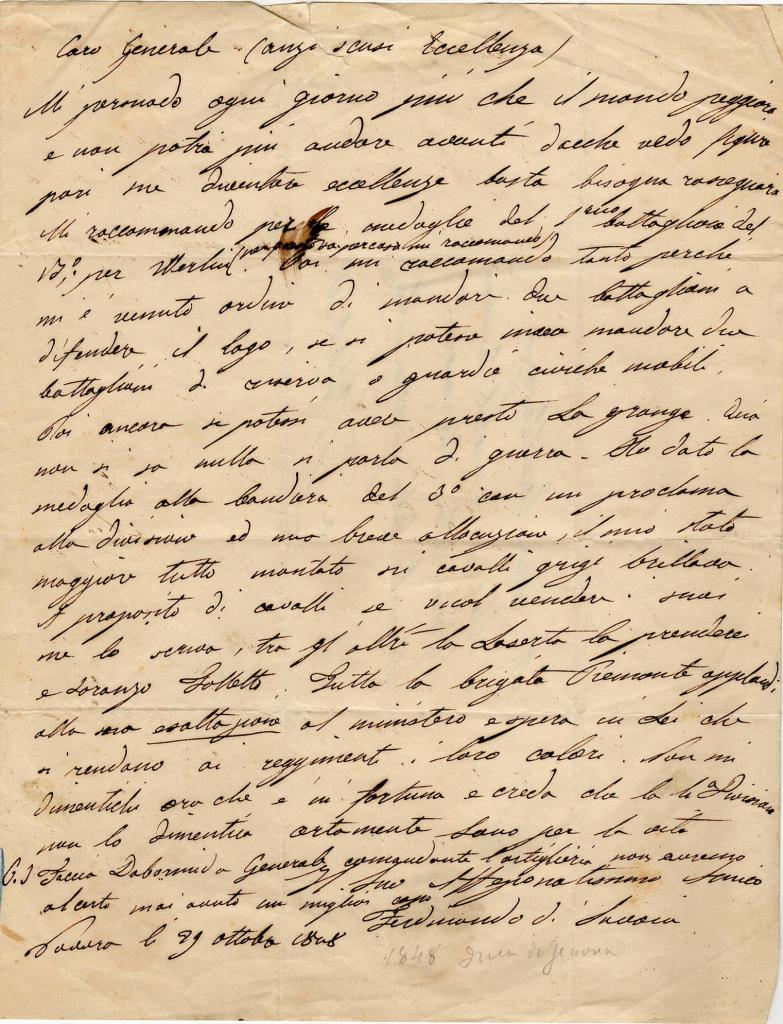 Caro Generale (anzi scusi Eccellenza)
Mi persuado ogni giorno più che il mondo peggiora
e non potrà più andare avanti dacche vedo
pari sue diventare eccellenze basta bisogna rassegnarsi
Mi raccomando per le medaglie del 1° battaglione del
13°; per Merlin Poi mi raccomando tanto perchè
mi è venuto ordine di mandare due battaglioni a
difendere il lago, se si potesse invece mandare due
battaglioni di riserva o guardie civiche mobili.
Poi ancora se potessi avere presto La grange. Quà
non si sa nulla si parla di guerra - Ho dato la
medaglia alla bandiera del 3° con un proclama
alla divisione ed una breve allocuzione, il mio stato
maggiore tutto montato su cavalli grigi brillava
A proposito di cavalli se vuol vendere i suoi
me lo scriva, tra gl' altri la Caserta la prenderei
e Soranzo. Tutta la brigata Piemonte applaudì
alla sua esaltazione al ministero e spera in Lei che
si rendano ai reggimenti i loro colori. Non mi
dimentichi ora che è in fortuna e creda che la 4 Divisione
non lo dimentica certamente Sono per la vita
P.S Faccia Dabormida Generale comandante l'artiglieria non avremo
Suo Affezionatissimo Amico
al certo mai avuto un miglior capo
Ferdinando di Savoia
Novara li 29 ottobre 1848
1848 Duca di Genova